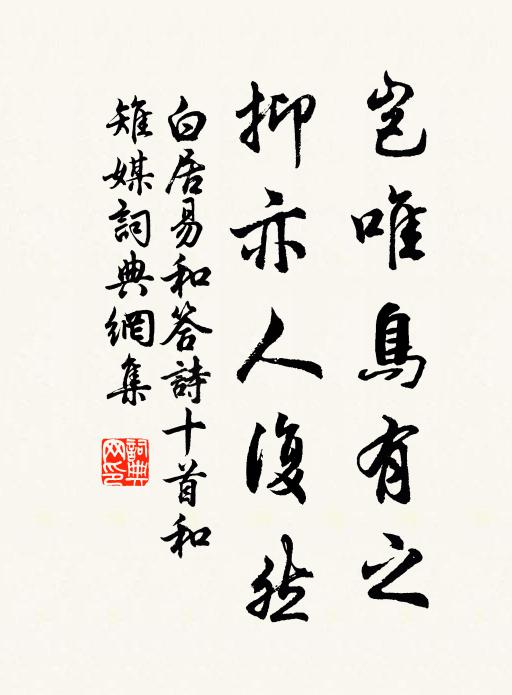 豈唯鳥有之
抑亦人復然
白居易和答詩十首和
雉媒詞典網集
詞典網印